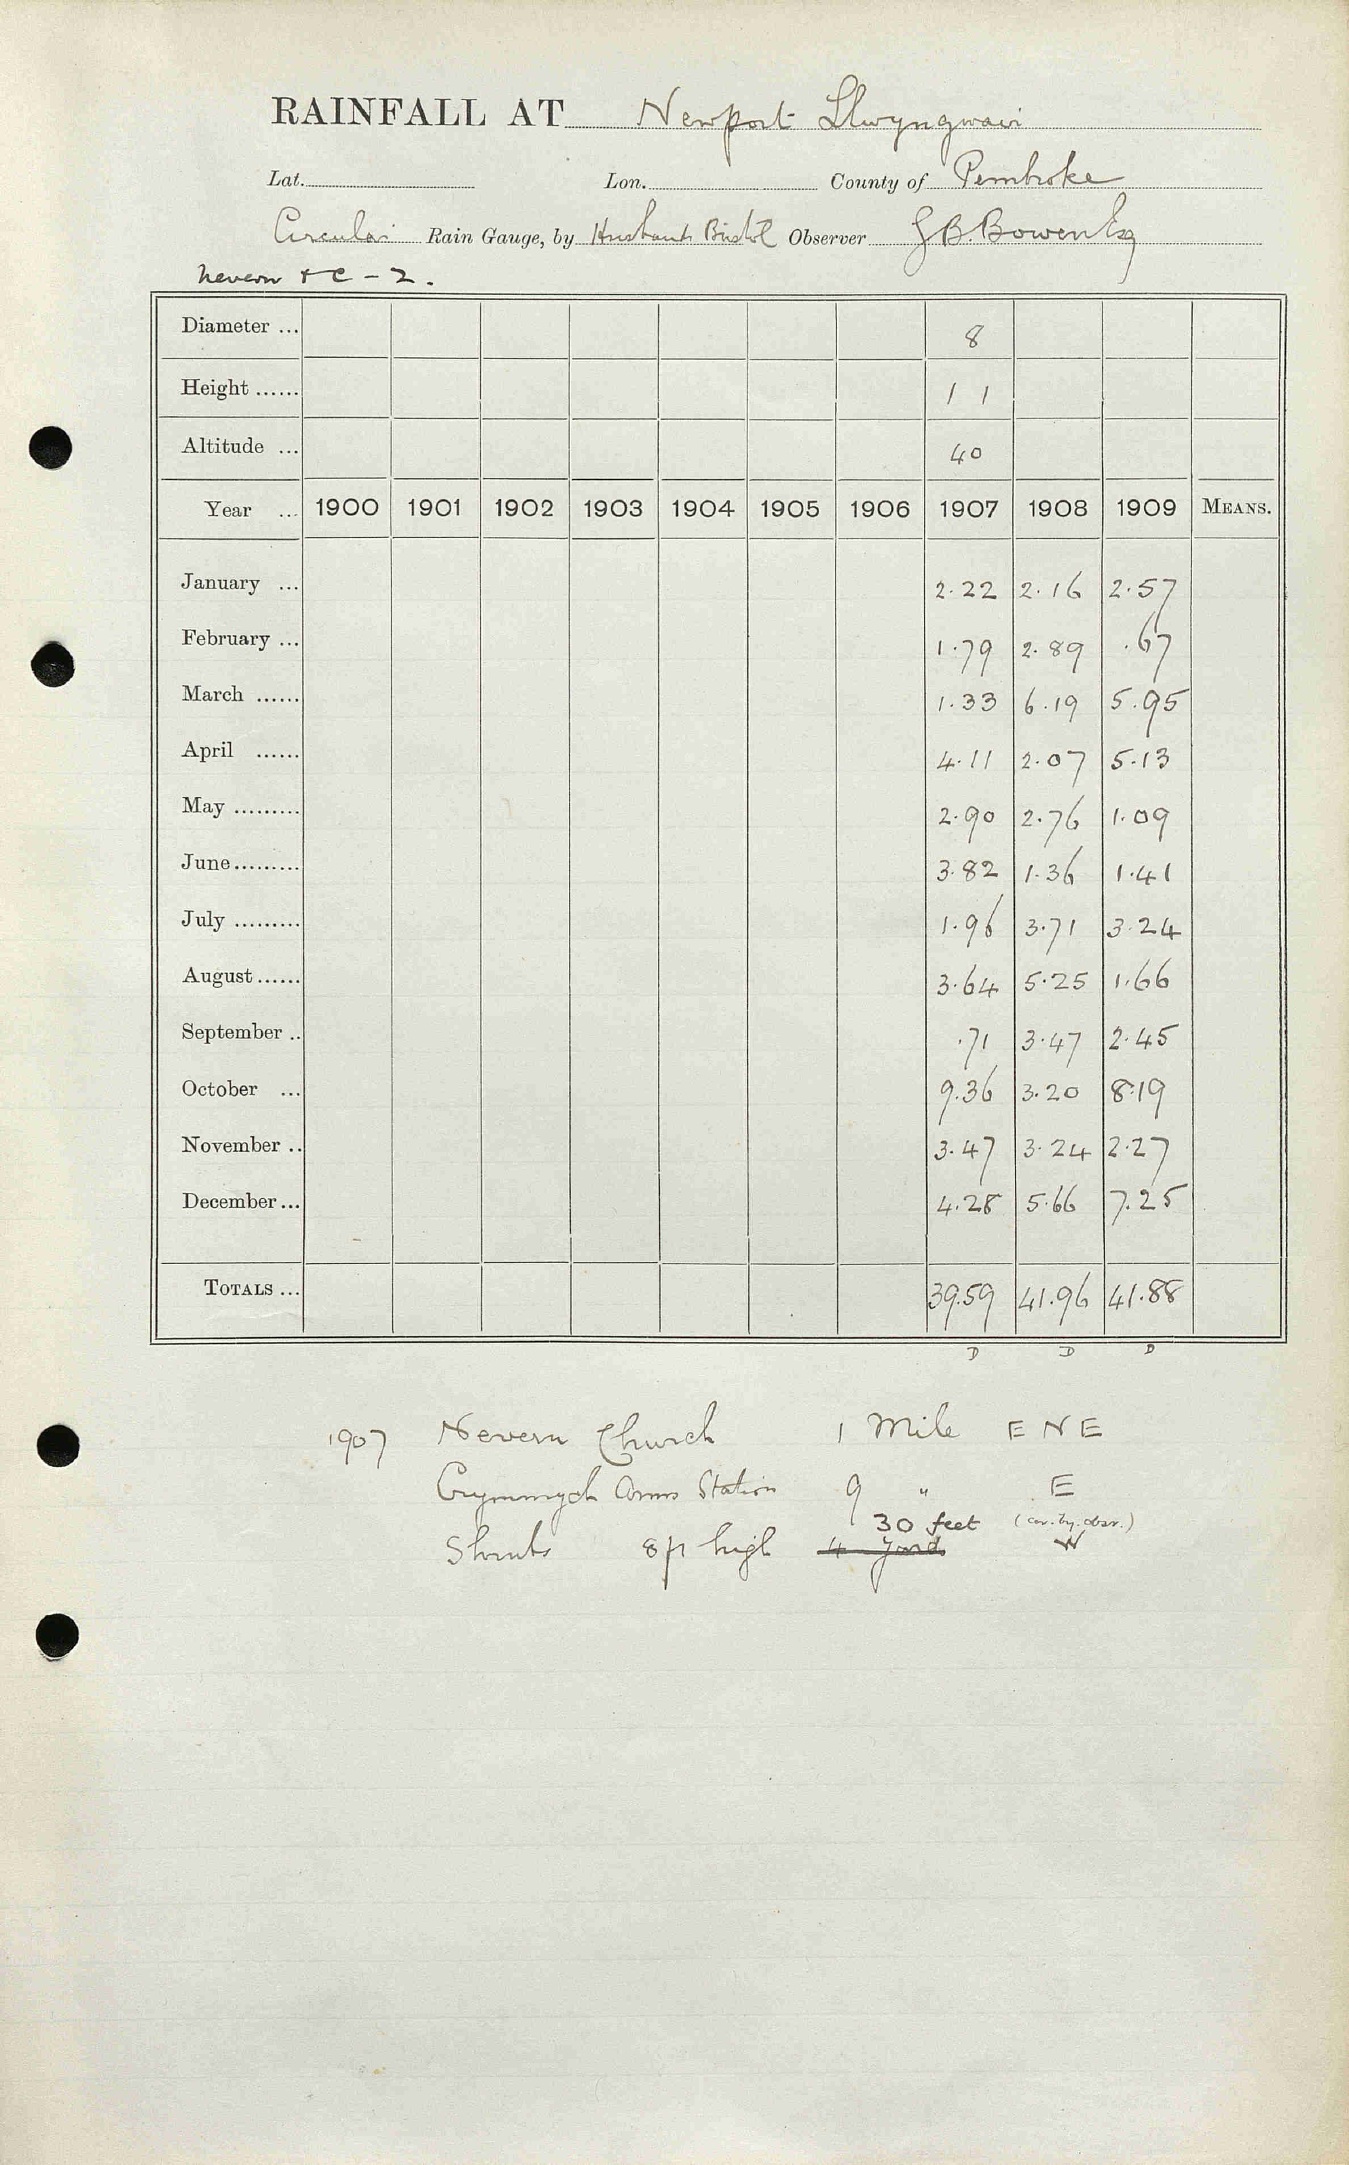 RAINFALL AT Newport Llwyngwair
Lat. Lon. County of Pembroke
Circular Rain Gauge, by Husband Bristol Observer G B. Bowen Esq
Nevern + C - 2.
Diameter ... 8
Height ...... 1 1
Altitude ... 40
Year ... 1900 1901 1902 1903 1904 1905 1906 1907 1908 1909 MEANS.
January ... 2.22 2.16 2.57
February ... 1.79 2.89 .67
March ...... 1.33 6.19 5.95
April ...... 4.11 2.07 5.13
May ......... 2.90 2.76 1.09
June ......... 3.82 1.36 1.41
July ......... 1.96 3.71 3.24
August ...... 3.64 5.25 1.66
September .. .71 3.47 2.45
October ... 9.36 3.20 8.19
November .. 3.47 3.24 2.27
December ... 4.28 5.66 7.25
TOTALS ... 39.59 41.96 41.88
D D D
1907 Nevern Church 1 Mile E N E
Crymmych Arms Station 9 " E
30 feet (cor. by. obsr.)
Shrubs 8ft high 4 yards W